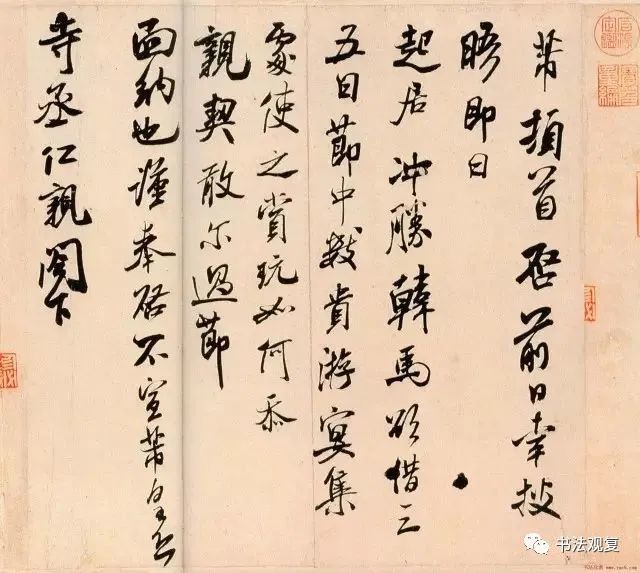 芾頓首啓前日幸披
晤即日
起居冲勝韓馬欲借三
五日節中數貴游宴集
處使之賞玩如何忝
親契敢尔過節
面納也謹奉啓不宣芾皇恐
寺丞仁親閣下
书法观复